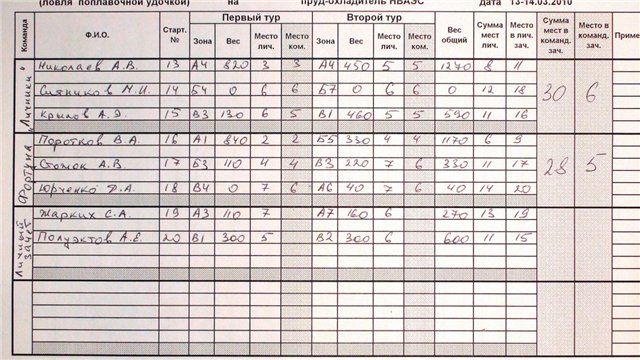 (ловля поплавочной удочкой) на пруд-охладитель НВАЭС дата 13-14.03.2010
Команда Ф.И.О. Старт. № Первый тур Второй тур Вес общий Сумма мест лич. Место в лич. зач. Сумма мест в команд. зач. Место в команд. зач. Приме
Зона Вес Место лич. Место ком. Зона Вес Место лич. Место ком.
„Личники"
Николаев А.В. 13 А4 820 3 3 А4 450 5 5 1270 8 11
Ситников М.И. 14 Б4 0 6 6 Б7 0 6 6 0 12 18 30 6
Крылов А.Д. 15 В3 130 6 5 В1 460 5 5 590 11 16
Фортуна
Поротков В.А. 16 А1 840 2 2 Б5 330 4 4 1170 6 9
Стомок А.В. 17 Б3 110 4 4 В3 220 7 6 330 11 17 28 5
Юрченко Д.А. 18 В4 0 7 6 А6 40 7 6 40 14 20
Личный зачет
Жарких С.А. 19 А3 110 7 А7 160 6 270 13 19
Полуэктов А.Е. 20 В1 300 5 В2 300 6 600 11 15